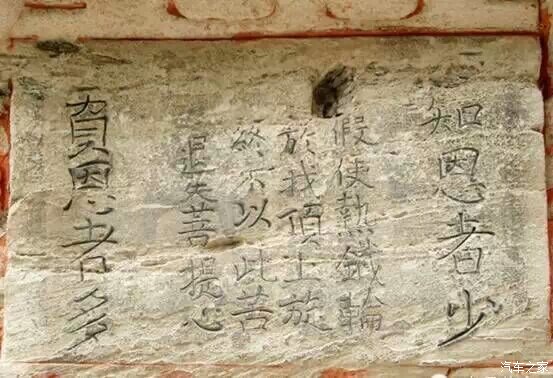 知恩者少
假使熱鐵輪
於我頂上旋
終不以此苦
退失菩提心
負恩者多
汽车之家